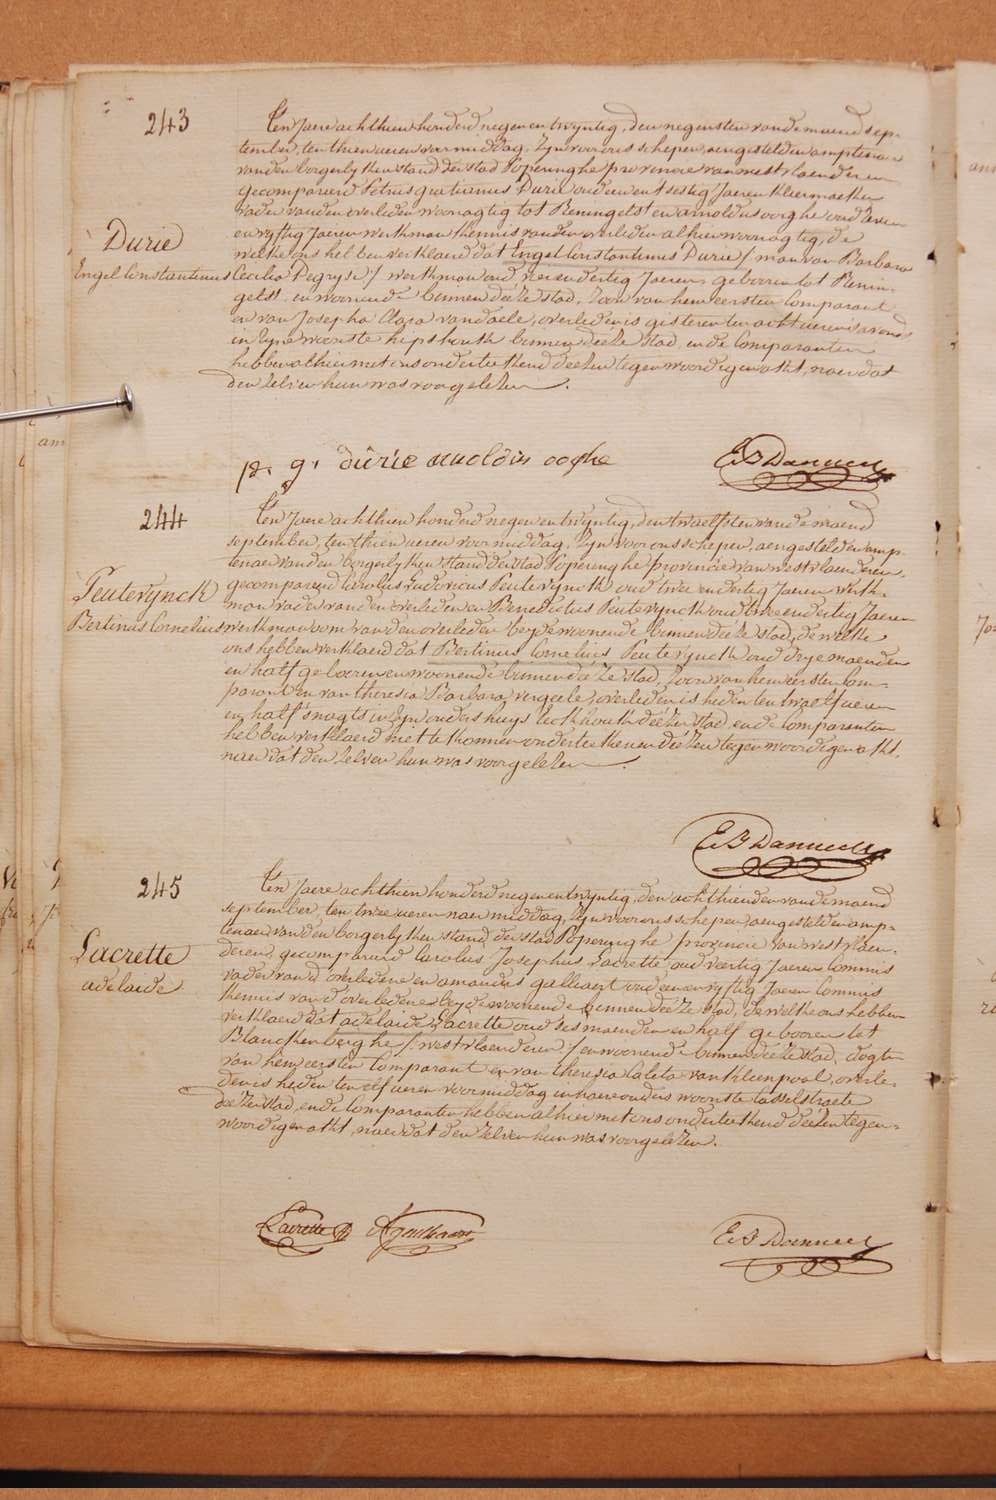 243
Ten Jaere achthien honderd negen en twyntig, den negensten van de maend sep-
tember, ten thien ueren voormiddag, Zyn voor ons schepen, aengestelden amptenaer
van den borgerlyken stand der stad Poperinghe provincie van westvlaenderen
gecompareerd Petrus gratianus Durie oud een en t'sestig Jaeren kleermaeker
vader van den overleden woonagtig tot Reninghelst en arnoldus ooghe oud
en vyftig Jaeren werkman kennis van den overleden alhier woonagtig, de
Durie
welke ons hebben verklaerd dat Engel Constantinus Durie / man van Barbara
Engel Constantinus
Cecilia Degryse / werkman oud dertig Jaeren, gebooren tot Renin-
gelst en woonende binnen deeze stad, Zoon van hem eersten Comparant
en van Josepha Clara vandaele, overleden is gisteren ten acht ueren s'avonds
in Zyne woonste binnen deeze stad, en de Comparanten
hebben alhier met ons onderteekend deezen tegenwoordigen akt, naer dat
den Zelven hun was voorgelezen.
p. g. dûrie arnoldûs ooghe
244
Ten Jaere achthien honderd negen en twyntig, den twaelfsten van de maend
september, ten thien ueren voormiddag, Zyn voor ons schepen, aengestelden amp-
tenaer van den borgerlyken stand der stad Poperinghe provincie van westvlaenderen,
gecompareerd Carolus Ludovicus Peuterynck oud twee en dertig Jaeren werk-
Peuterynck
man vader van den overleden en Benedictus Peuterynck oud twee en dertig Jaeren
Bertinus Cornelius
werkman oom van den overleden beyde woonende binnen deeze stad, de welke
ons hebben verklaerd dat Bertinus Cornelius Peuterynck oud drye maenden
en half gebooren en woonende binnen deeze stad, Zoon van hem eersten Com-
parant en van theresia Barbara vergeele, overleden is heden ten twaelf ueren
en half s'nagts in Zyn ouders huys deezer stad, en de Comparanten
hebben verklaerd niet te konnen onderteekenen deezen tegenwoordigen akt,
naer dat den Zelven hun was voorgelezen.
245
Ten Jaere achthien honderd negen en twyntig, den achthienden van de maend
september, ten twee ueren naer middag, Zyn voor ons schepen aengestelden amp-
tenaer van den borgerlyken stand der stad Poperinghe provincie van westvlaen-
Lacrette
deren, gecompareerd Carolus Josephus Lacrette oud veertig Jaeren Commis
adelaide
vader van d'overledene en amandus galliaert oud een en vyftig Jaeren Commis
kennis van d'overledene beyde woonende binnen deeze stad, de welke ons hebben
verklaerd dat adelaide Lacrette oud ses maenden en half gebooren tot
Blanckenberghe / westvlaenderen / en woonende binnen deeze stad, dogter
van hem eersten Comparant en van theresia Caleta vankleenpoel, overle-
den is heden ten elf ueren voormiddag in haere ouders woonste Casselstraete
deezer stad, en de Comparanten hebben alhier met ons onderteekend deezen tegen-
woordigen akt, naer dat den Zelven hun was voorgelezen.
Lacrette